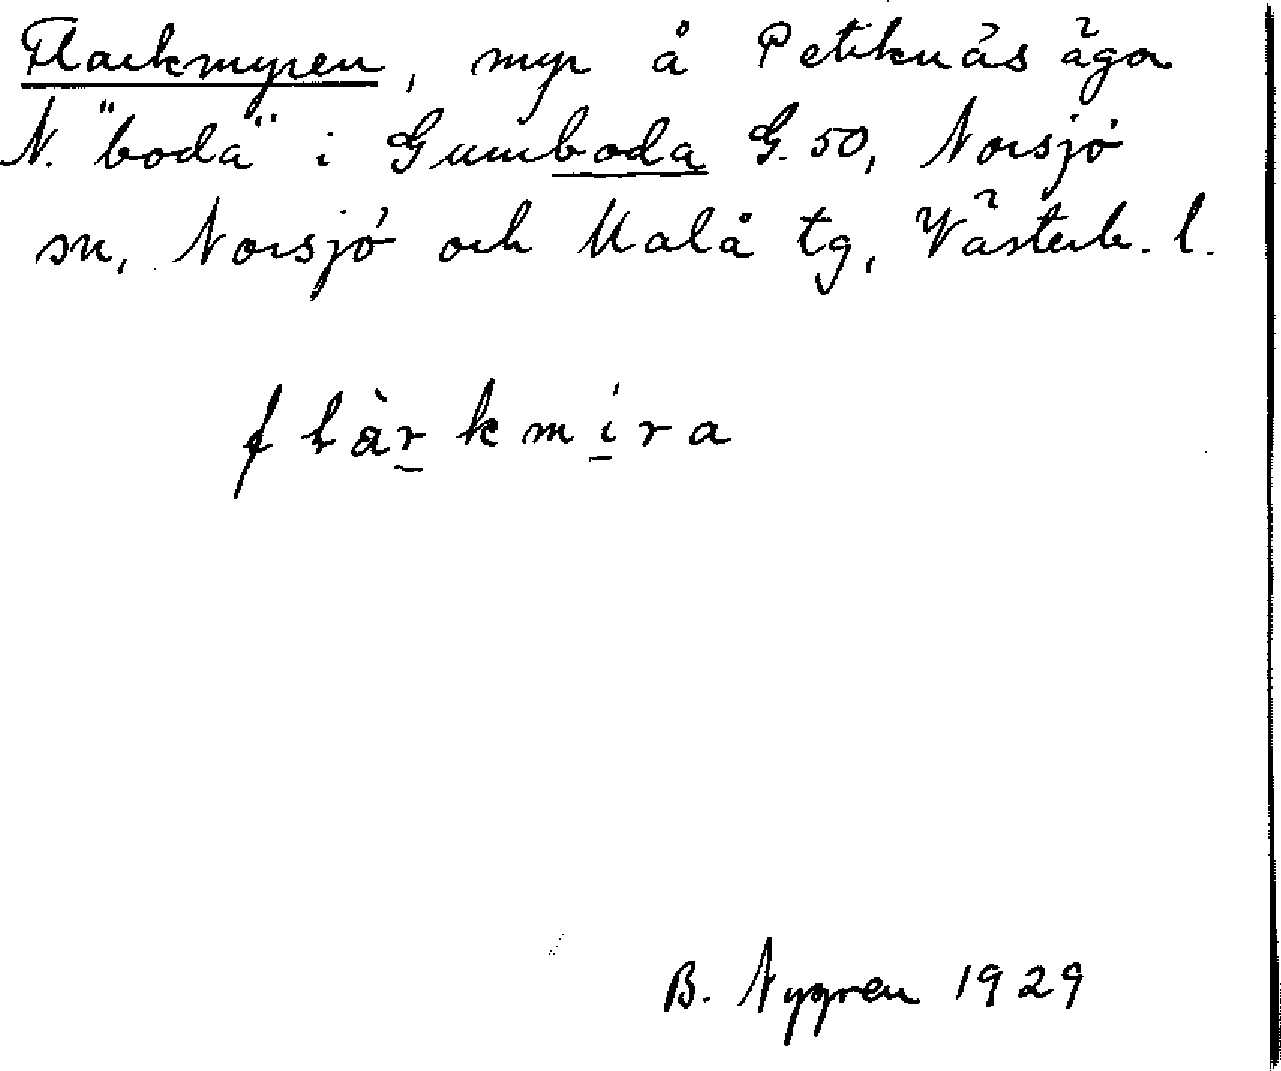 Flarkmyren, myr å Petiknäs ägor
N. "boda" i Gumboda G. 50, Norsjö
sn, Norsjö och Malå tg, Västerb. l.
flàrkmíra
B. Nygren 1929